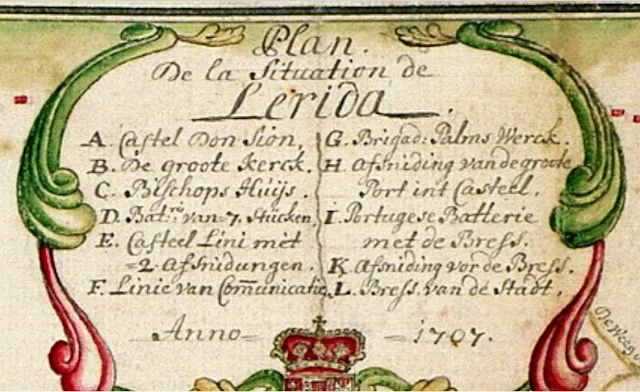 Plan.
De la Situation de
Lerida.
A. Castel Don Sion,
B. De groote Kerck.
C. Bisschops Huijs.
D. Bat:rij van 7. Stucken,
E. Casteel Lini met
=2. Afsnidungen.
F. Linie van Com̄unicatie,
G. Brigad: Palms Werck.
H. Afsniding van de groote
Port int Casteel.
I. Portugese Batterie
met de Bress.
K. Afsniding vor de Bress.
L. Bress. van de Stadt,
Anno= =1707.